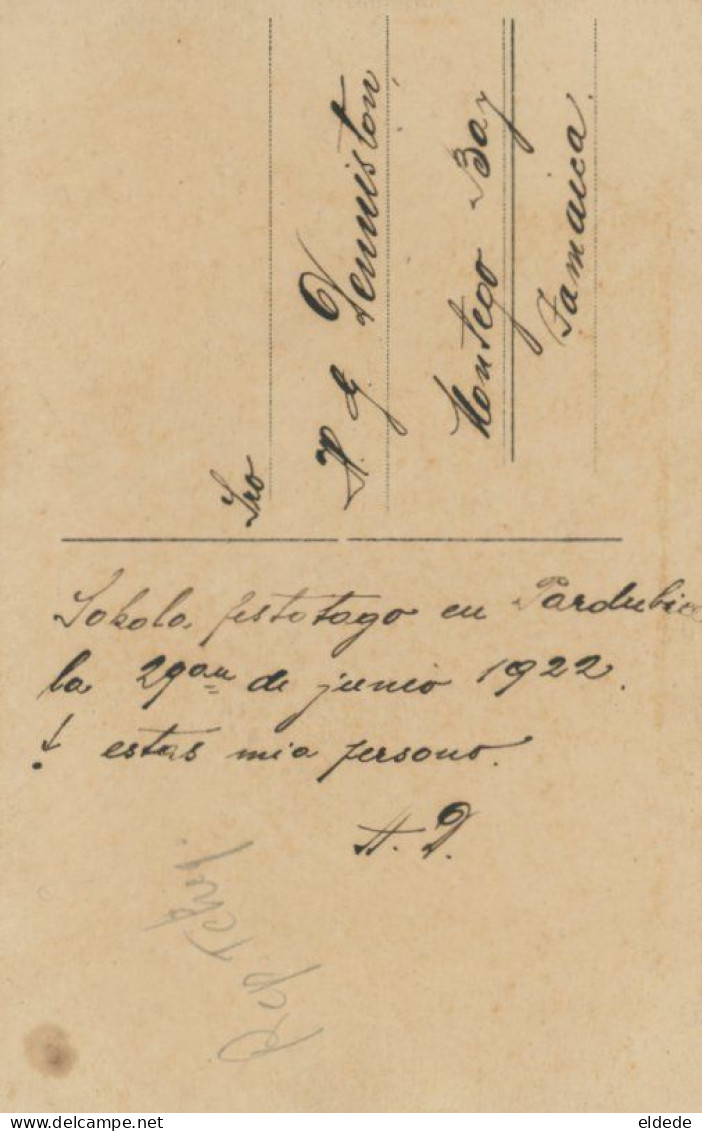 Sro
H. G. Denniston,
Montego Bay
Jamaica.
Sokola festotago en Pardubice
la 29an de junio 1922.
! estas mia persono.
A. D.
Rep. Tcheq.
eldede